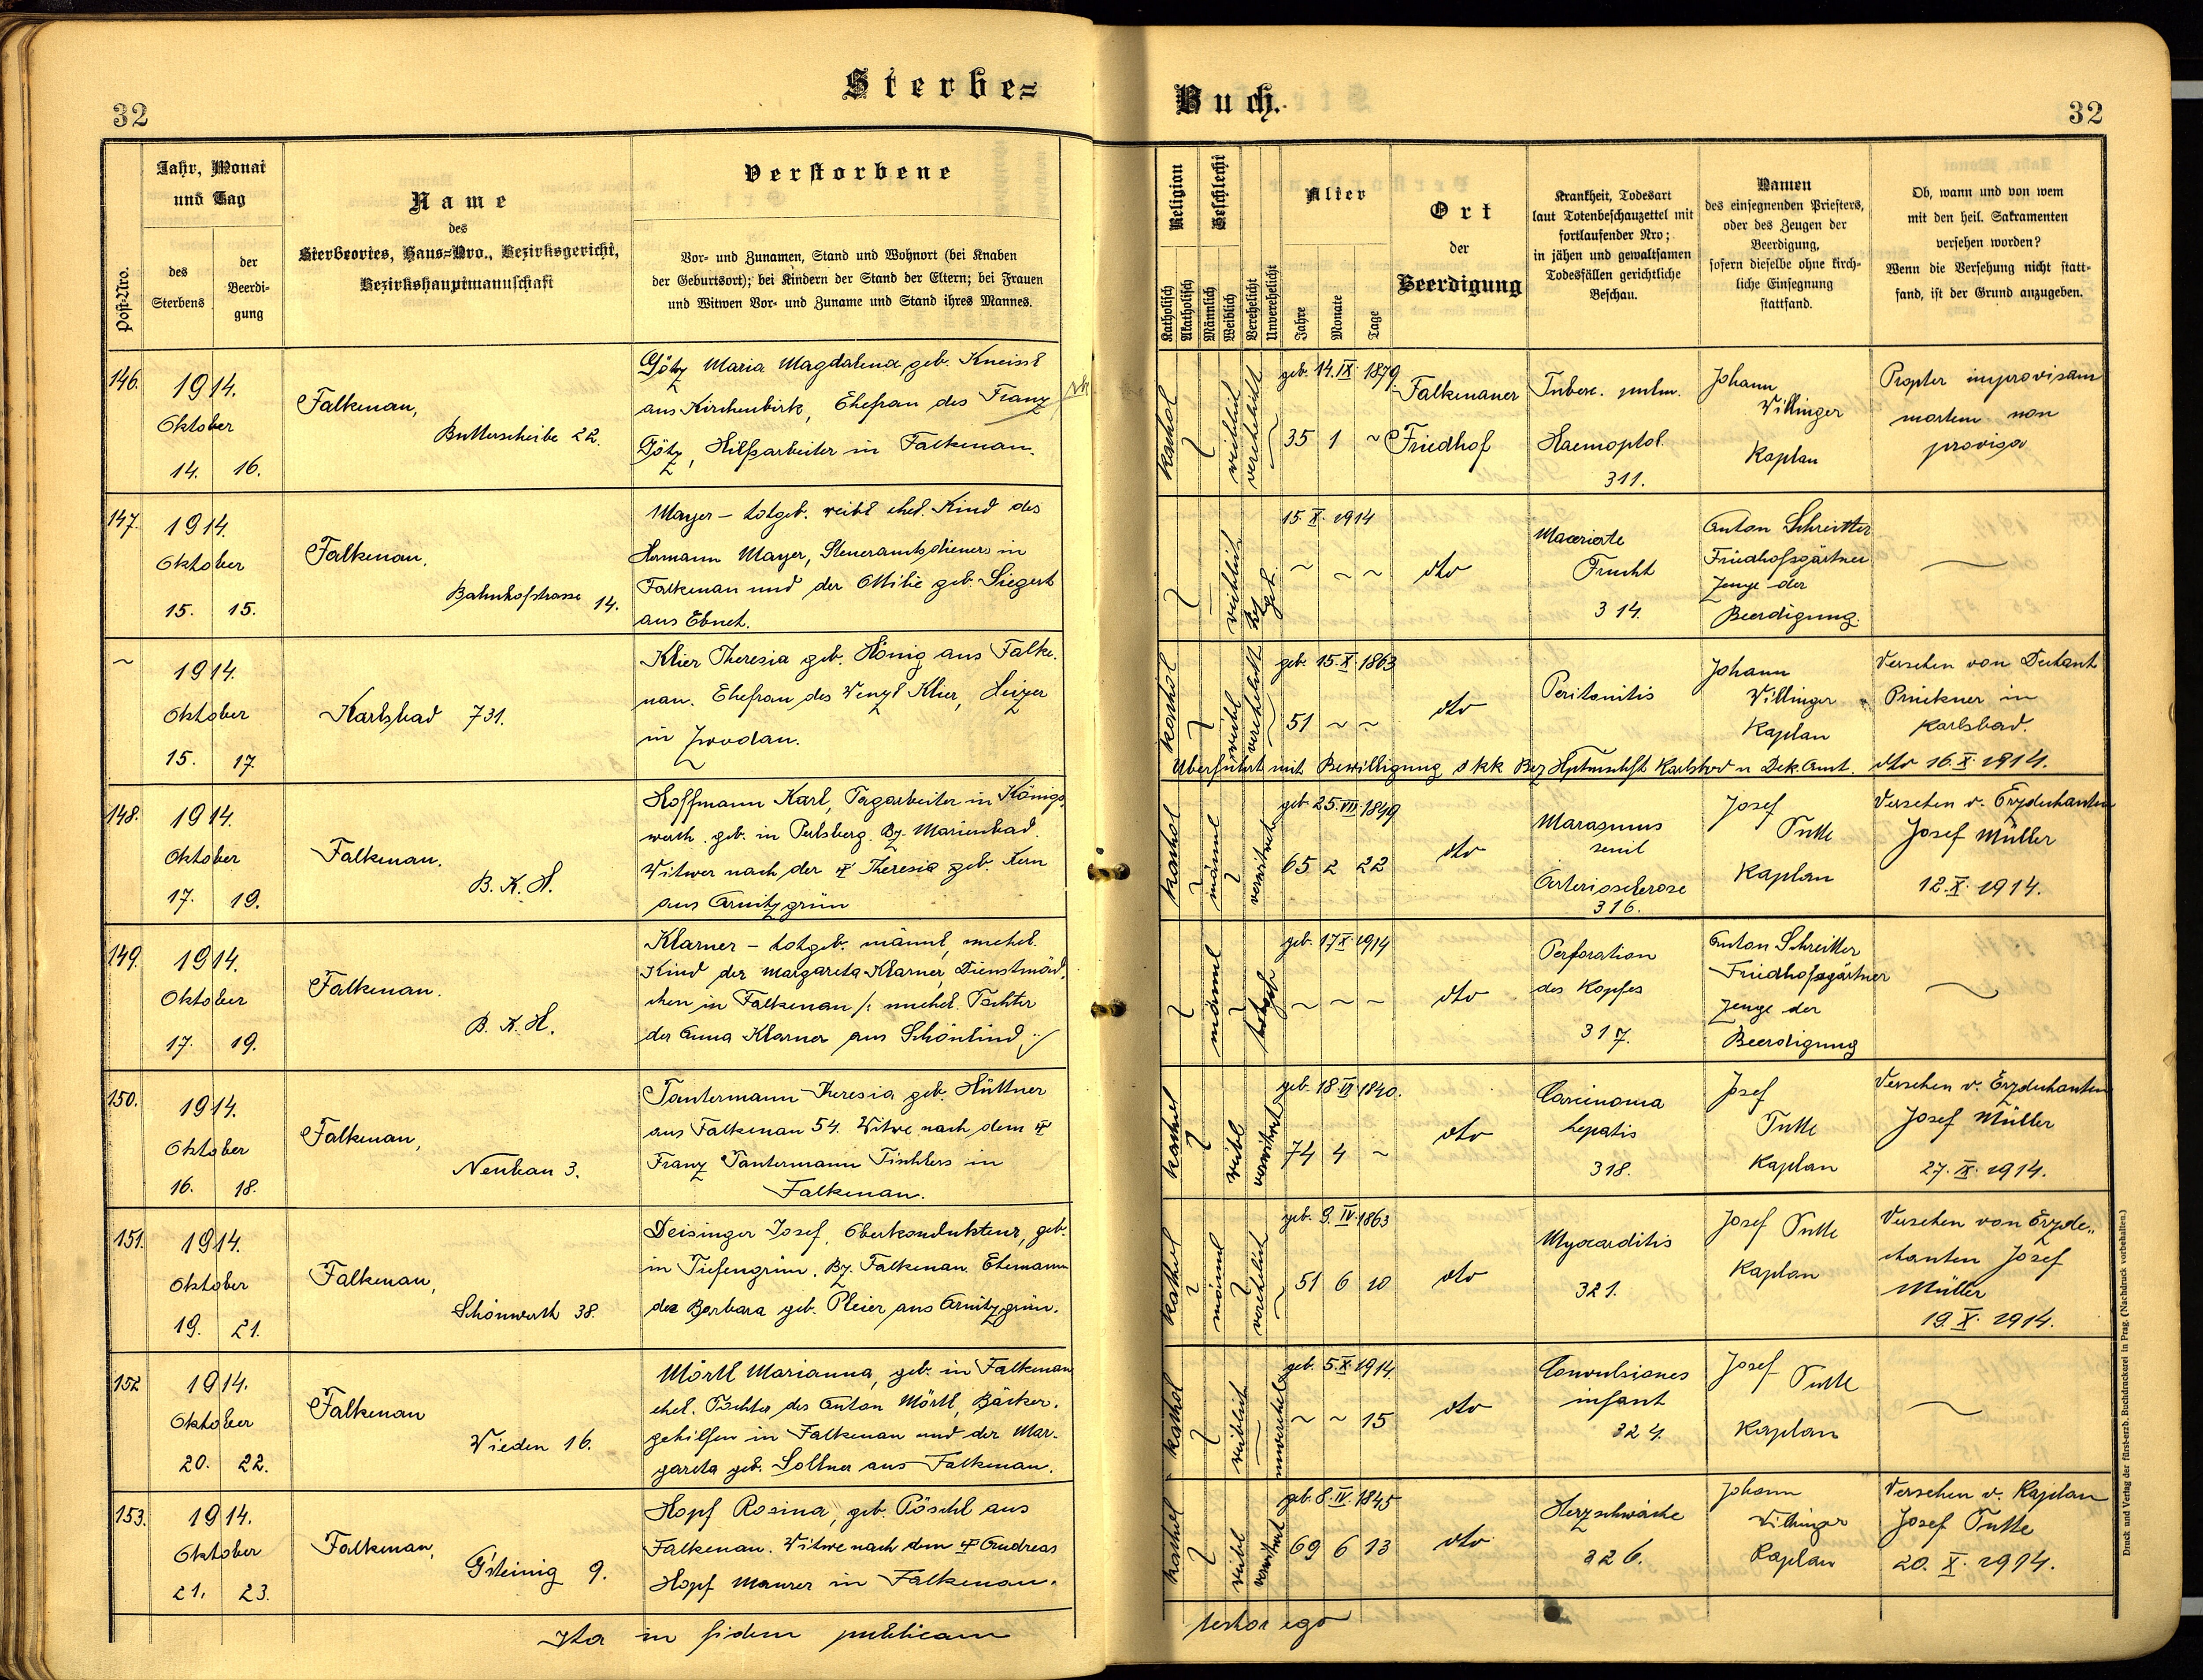 Sterbe=
Buch.
32
32
Post-Nro.
Jahr, Monat
und Tag
des
Sterbens
der
Beerdi-
gung
Name
des
Sterbeortes, Haus=Nro., Bezirksgericht,
Bezirkshauptmannschaft
Verstorbene
Vor- und Zunamen, Stand und Wohnort (bei Knaben
der Geburtsort); bei Kindern der Stand der Eltern; bei Frauen
und Witwen Vor- und Zuname und Stand ihres Mannes.
Religion
Katholisch
Akatholisch
Geschlecht
Männlich
Weiblich
Verehelicht
Unverehelicht
Alter
Jahre
Monate
Tage
Ort
der
Beerdigung
Krankheit, Todesart
laut Totenbeschauzettel mit
fortlaufender Nro;
in jähen und gewaltsamen
Todesfällen gerichtliche
Beschau.
Namen
des einsegnenden Priesters,
oder des Zeugen der
Beerdigung,
sofern dieselbe ohne kirch-
liche Einsegnung
stattfand.
Ob, wann und von wem
mit den heil. Sakramenten
versehen worden?
Wenn die Versehung nicht statt-
fand, ist der Grund anzugeben.
146.
1914.
Oktober
14. 16.
Falkenau,
Butterscheibe 22.
Götz Maria Magdalena, geb. Kneissl
aus Kirchenbirk, Ehefrau des Franz
Götz, Hilfsarbeiter in Falkenau.
kathol
weiblich
verehelicht
geb. 14. IX. 1879
35 1 ~
Falkenauer
Friedhof
Tuberc. pulm.
Haemoptoe
311.
Johann
Willinger
Kaplan
Propter improvisam
mortem non
provisa
147.
1914.
Oktober
15. 15.
Falkenau,
Bahnhofstrasse 14.
Mayer – totgeb. weibl ehel. Kind des
Hermann Mayer, Steueramtsdieners in
Falkenau und der Ottilie geb. Siegert
aus Ebnet.
weiblich
tot
geb.
15. X. 1914
~ ~ ~
dto
Macerierte
Frucht
314.
Anton Schreitter
Friedhofsgärtner
Zeuge der
Beerdigung.
~
~
1914.
Oktober
15. 17.
Karlsbad 731.
Klier Theresia geb. Hönig aus Falke-
nau. Ehefrau des Wenzl Klier, Heizer
in Zwodau.
kathol
weibl
verehelicht
geb. 15. X. 1863
51 ~ ~
dto
Peritonitis
Johann
Willinger
Kaplan
Versehen von Dechant
Prückner in
Karlsbad.
Überführt mit Bewilligung d kk Bez Hptmschft Karlsbad u Dek. Amt. dto 16. X. 1914.
148.
1914.
Oktober
17. 19.
Falkenau.
B. K. H.
Hoffmann Karl, Tagarbeiter in Königs-
werth, geb. in Perlsberg. Bz. Marienbad.
Witwer nach der † Theresia geb. Kern
aus Arnitzgrün
kathol
männl
verwitwet
geb. 25. VII. 1849
65 2 22
dto
Marasmus
senil
Arteriosclerose
316.
Josef
Tutte
Kaplan
Versehen v. Erzdechanten
Josef Müller
12. X. 1914.
149.
1914.
Oktober
17. 19.
Falkenau.
B. K. H.
Klarner – totgeb. männl, unehel.
Kind der Margareta Klarner, Dienstmäd-
chen in Falkenau /: unehel. Tochter
der Anna Klarner aus Schönlind :/
männl
totgeb
geb. 17. X. 1914
~ ~ ~
dto
Perforation
des Kopfes
317.
Anton Schreitter
Friedhofsgärtner
Zeuge der
Beerdigung
~
150.
1914.
Oktober
16. 18.
Falkenau,
Neubau 3.
Tautermann Theresia geb. Hüttner
aus Falkenau 54. Witwe nach dem †
Franz Tautermann Tischlers in
Falkenau.
kathol
weibl
verwitwet
geb. 18 VI 1840.
74 4 ~
dto
Carcinoma
hepatis
318.
Josef
Tutte
Kaplan
Versehen v. Erzdechanten
Josef Müller
27. IX. 1914.
151.
1914.
Oktober
19. 21.
Falkenau,
Schönwerth 38.
Deisinger Josef, Oberkondukteur, geb.
in Tiefengrün, Bz. Falkenau. Ehemann
der Barbara geb. Pleier aus Arnitzgrün.
kathol
männl
verehelicht
geb. 9. IV. 1863
51 6 10
dto
Myocarditis
321.
Josef Tutte
Kaplan
Versehen von Erzde-
chanten Josef
Müller
19. X. 1914.
152
1914.
Oktober
20. 22.
Falkenau
Wieden 16.
Mörtl Marianna, geb. in Falkenau
ehel. Tochter des Anton Mörtl, Bäcker-
gehilfen in Falkenau und der Mar-
gareta geb. Sollner aus Falkenau.
kathol
weiblich
unverehel
geb. 5. X. 1914
~ ~ 15
dto
Convulsiones
infant
324.
Josef Tutte
Kaplan
~
153.
1914.
Oktober
21. 23.
Falkenau,
Gsteinig 9.
Hopf Rosina, geb. Pöschl aus
Falkenau. Witwe nach dem † Andreas
Hopf Maurer in Falkenau.
kathol
weibl
verwitwet
geb. 8. IV. 1845
69 6 13
dto
Herzschwäche
326.
Johann
Willinger
Kaplan
Versehen v. Kaplan
Josef Tutte
20. X. 1914.
Ita in fidem publicam
testor ego
Druck und Verlag der fürst-erzb. Buchdruckerei in Prag. (Nachdruck vorbehalten.)